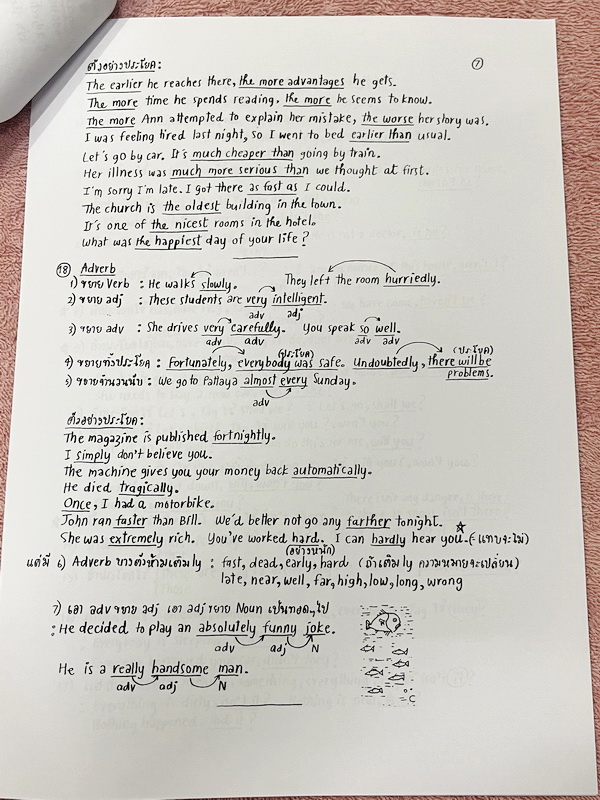 ตัวอย่างประโยค: 7
The earlier he reaches there, the more advantages he gets.
The more time he spends reading, the more he seems to know.
The more Ann attempted to explain her mistake, the worse her story was.
I was feeling tired last night, so I went to bed earlier than usual.
Let's go by car. It's much cheaper than going by train.
Her illness was much more serious than we thought at first.
I'm sorry I'm late. I got there as fast as I could.
The church is the oldest building in the town.
It's one of the nicest rooms in the hotel.
What was the happiest day of your life?
18 Adverb
1) ขยาย Verb : He walks slowly. They left the room hurriedly.
2) ขยาย adj : These students are very intelligent.
adv adj
3) ขยาย adv : She drives very carefully. You speak so well.
adv adv adv adv
(ประโยค) (ประโยค)
4) ขยายทั้งประโยค : Fortunately, everybody was safe. Undoubtedly, there will be
problems.
5) ขยายจำนวนนับ : We go to Pattaya almost every Sunday.
adv
ตัวอย่างประโยค:
The magazine is published fortnightly.
I simply don't believe you.
The machine gives you your money back automatically.
He died tragically.
Once, I had a motorbike.
John ran faster than Bill. We'd better not go any farther tonight.
She was extremely rich. You've worked hard. I can hardly hear you. (=แทบจะไม่)
(อย่างหนัก)
แต่มี 6) Adverb บางตัวห้ามเติม ly : fast, dead, early, hard (ถ้าเติม ly ความหมายจะเปลี่ยน)
late, near, well, far, high, low, long, wrong
7) เอา adv ขยาย adj เอา adj ขยาย Noun เป็นทอดๆไป
: He decided to play an absolutely funny joke.
adv adj N
He is a really handsome man.
adv adj N